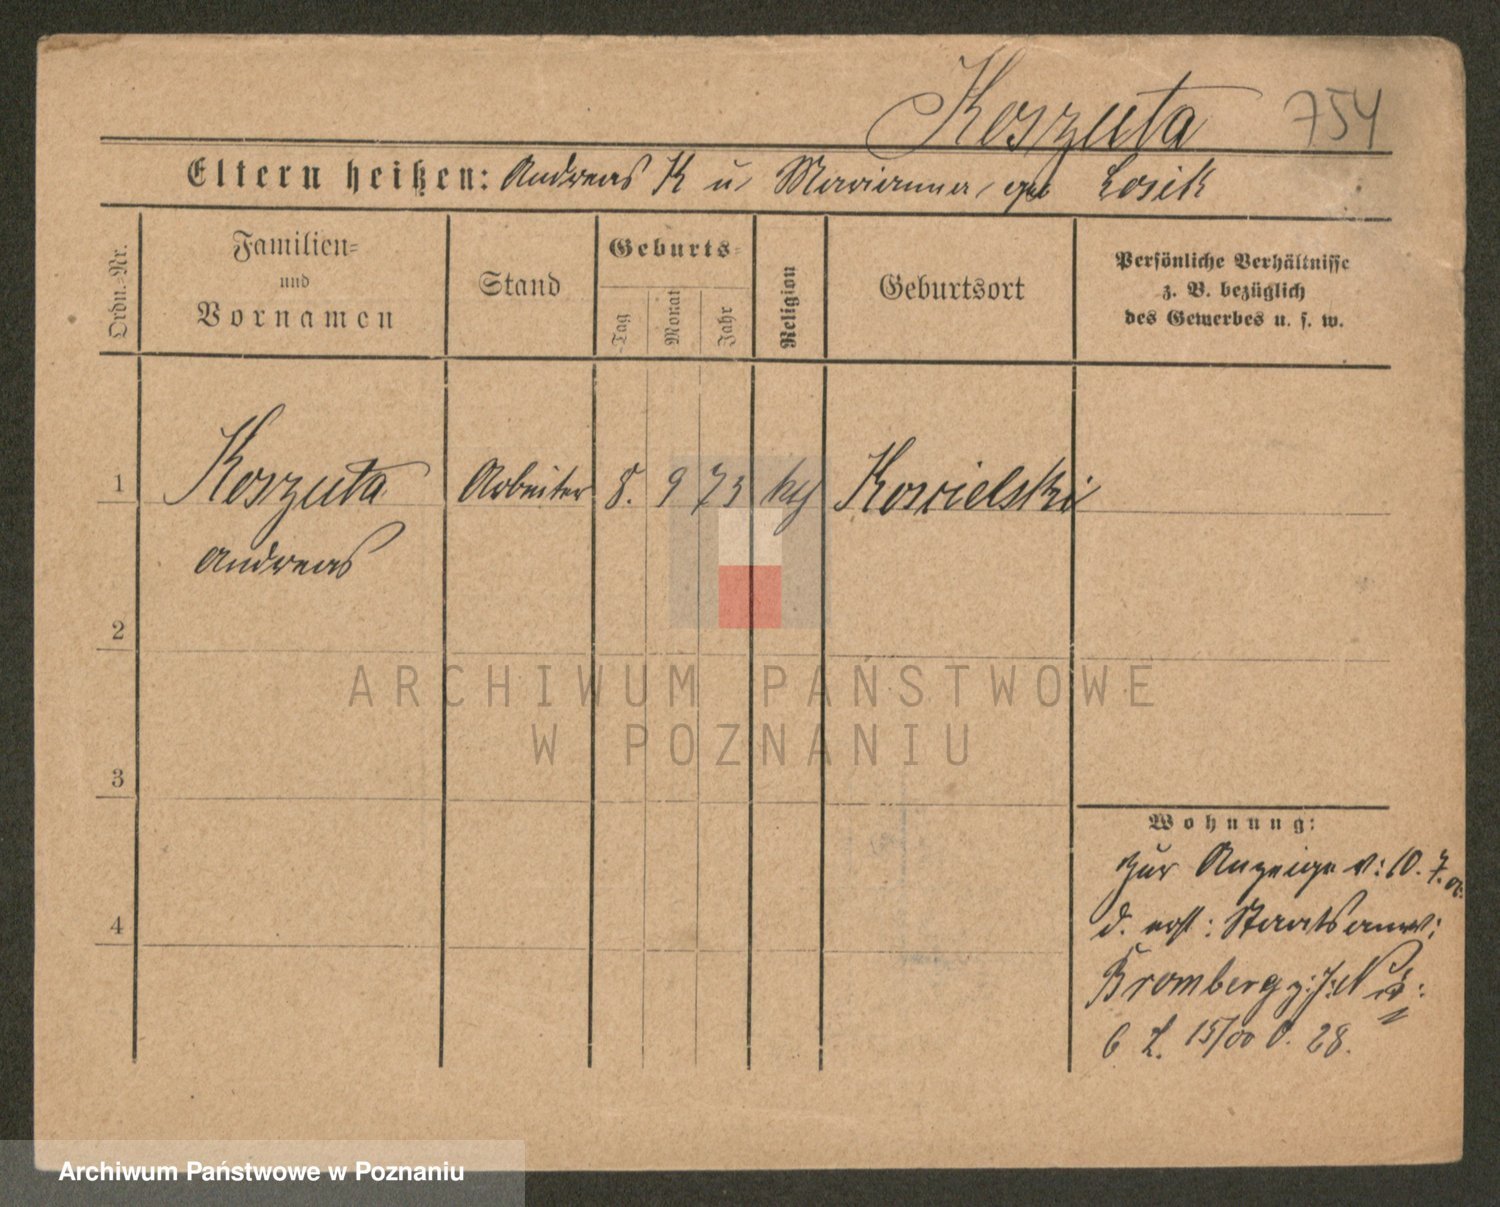 Koszuta 754
Eltern heißen: Andreas K u. Marianna geb Losik
Ordn.-Nr.
Familien-
und
Vornamen
Stand
Geburts-
Tag
Monat
Jahr
Religion
Geburtsort
Persönliche Verhältnisse
z. B. bezüglich
des Gewerbes u. s. w.
1 Koszuta Arbeiter 8. 9 73 Koscielski
Andreas
2
3
4
Wohnung:
Zur Anzeige v: 10. 7.
d. erst: Staatsanw:
Bromberg z: J: N
6 L. 15/00 28.
ARCHIWUM PAŃSTWOWE
W POZNANIU
Archiwum Państwowe w Poznaniu